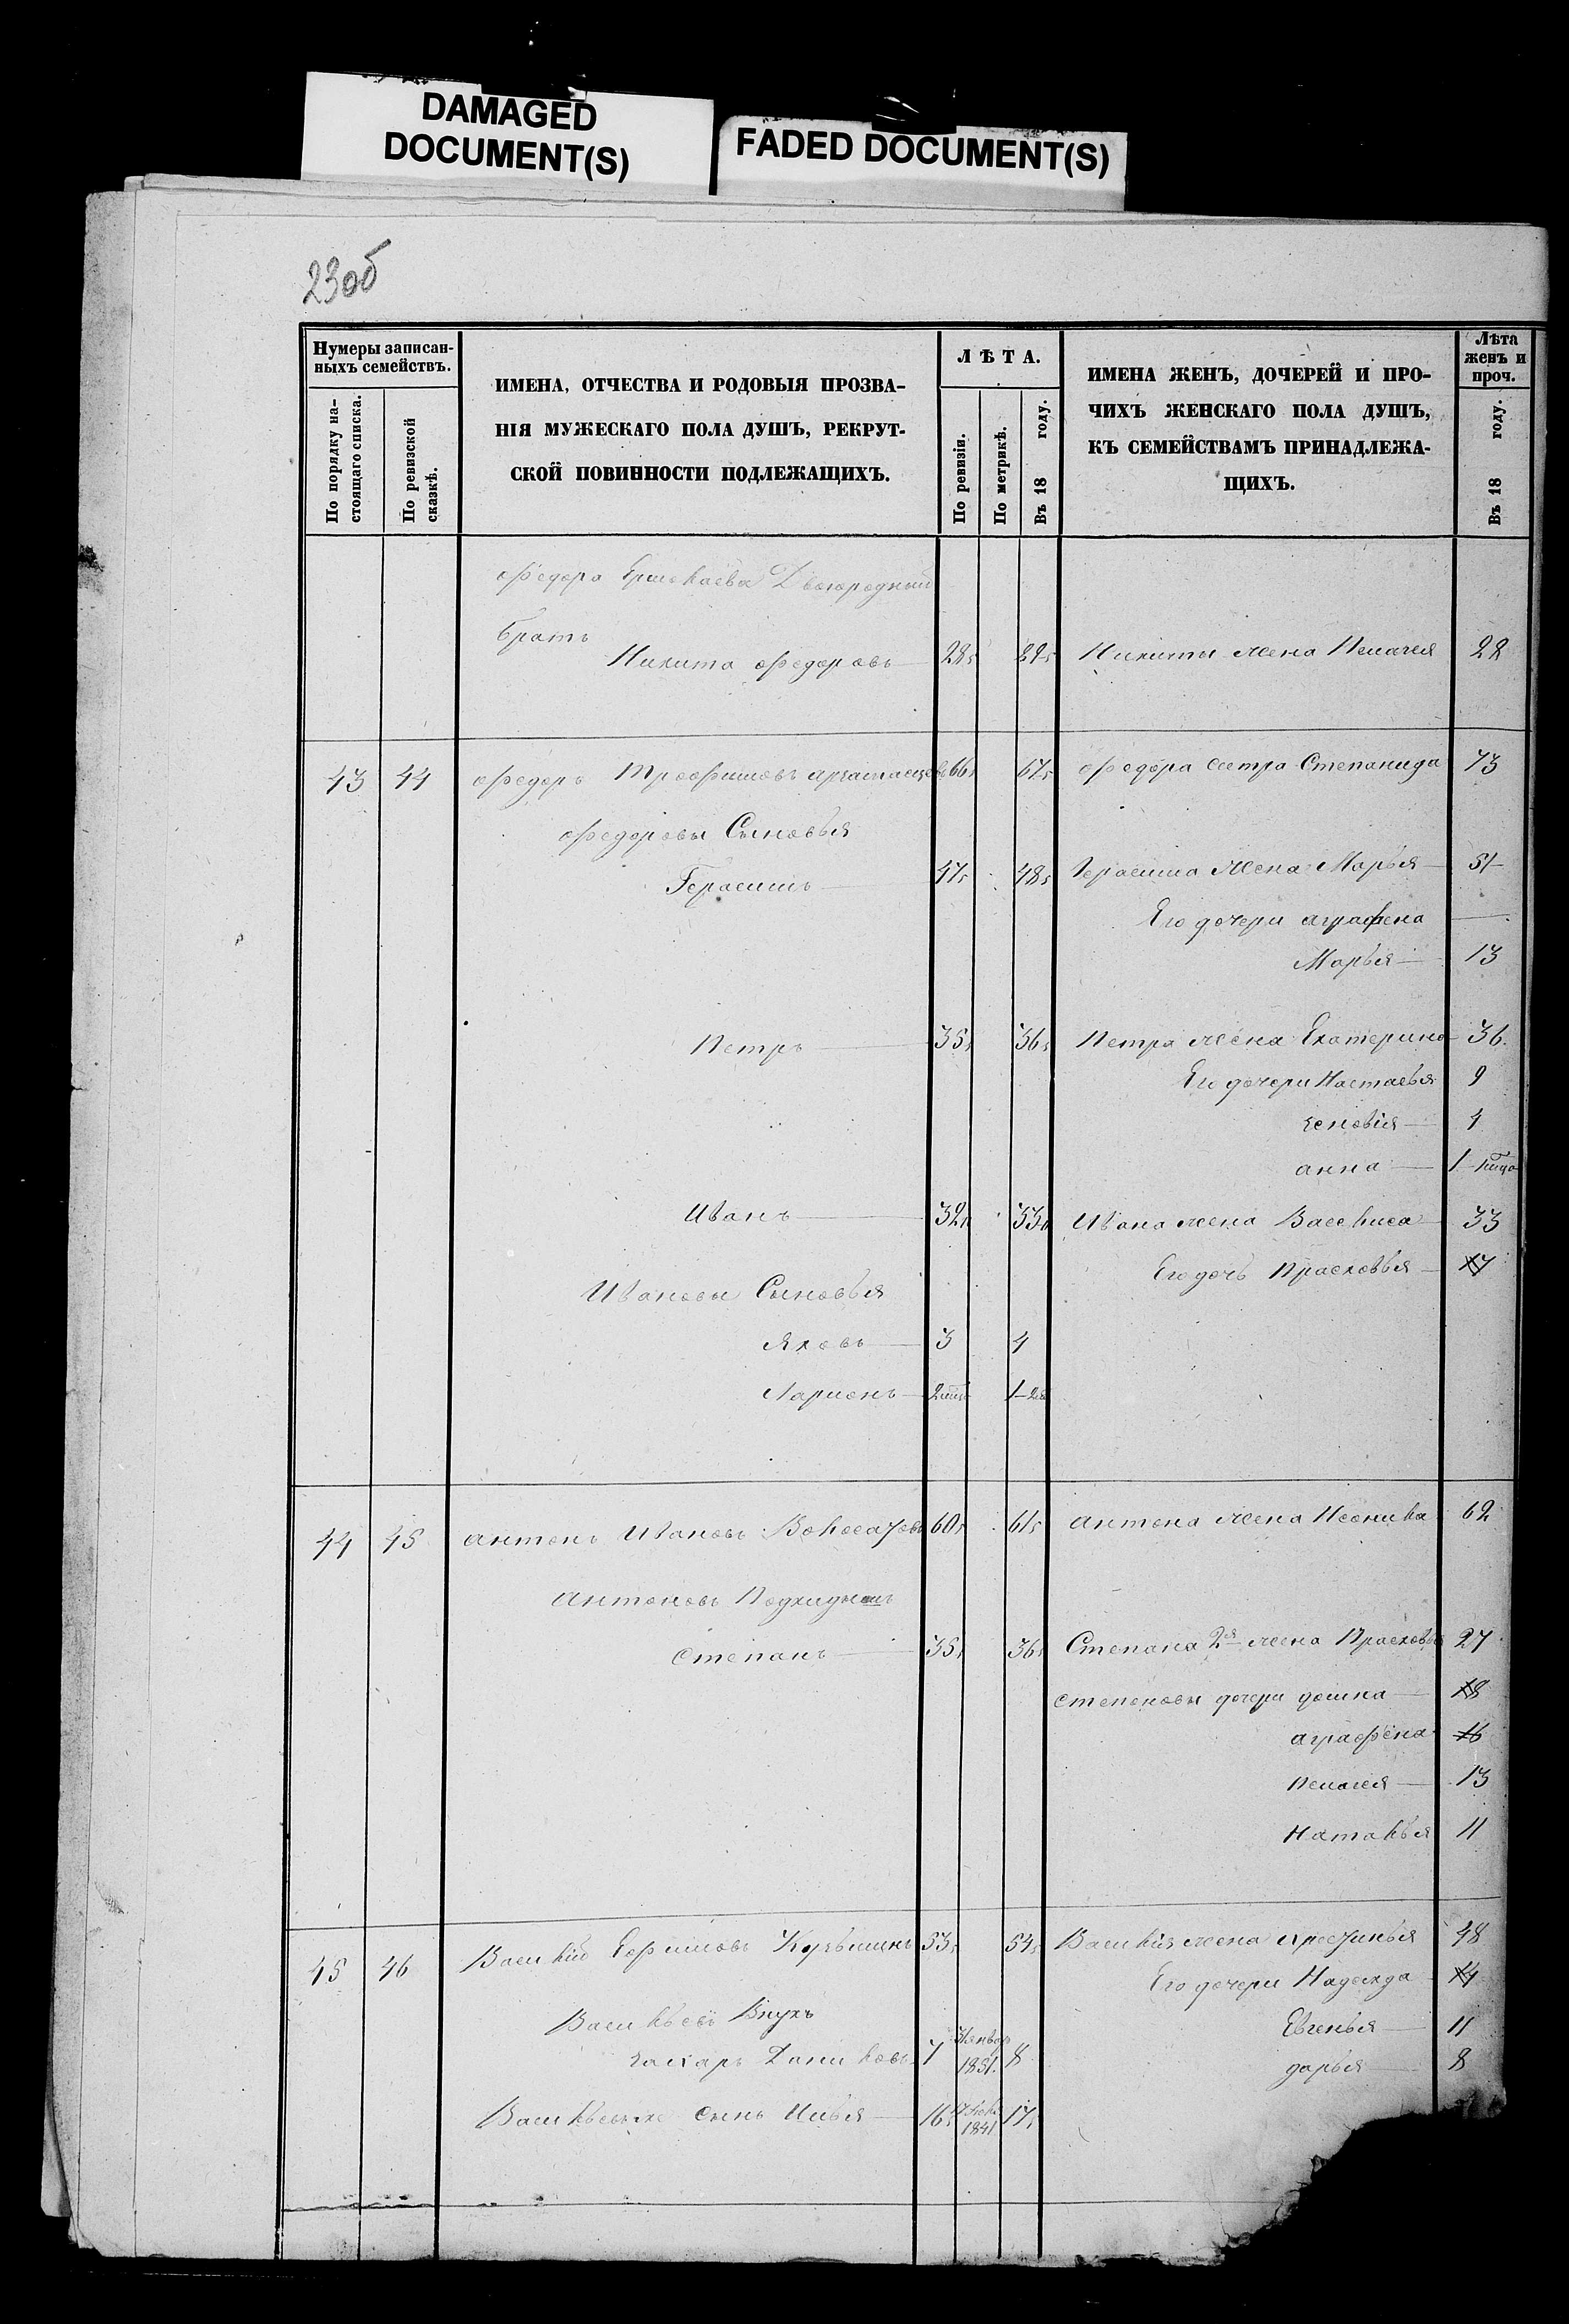 DAMAGED
DOCUMENT(S)
FADED DOCUMENT(S)
23об
Нумеры записан-
ныхъ семействъ.
По порядку на-
стоящаго списка.
По ревизской
сказкѣ.
ИМЕНА, ОТЧЕСТВА И РОДОВЫЯ ПРОЗВА-
НІЯ МУЖЕСКАГО ПОЛА ДУШЪ, РЕКРУТ-
СКОЙ ПОВИННОСТИ ПОДЛЕЖАЩИХЪ.
ЛѢТА.
По ревизіи.
По метрикѣ.
Въ 18 году.
ИМЕНА ЖЕНЪ, ДОЧЕРЕЙ И ПРО-
ЧИХЪ ЖЕНСКАГО ПОЛА ДУШЪ,
КЪ СЕМЕЙСТВАМЪ ПРИНАДЛЕЖА-
ЩИХЪ.
Лѣта
женъ и
проч.
Въ 18 году.
Федора Ермолаева Двоюродный
братъ
Никита Федоровъ 28 29 Никиты жена Пелагея 28
43 44 Федоръ Трофимовъ 66 67 Федора сестра Степанида 73
Федоровы Сыновья
Герасимъ 47 48 Герасима жена Марья 51
Его дочери аграфена
Марья 13
Петръ 35 36 Петра жена Екатерина 36
Его дочери Настасья 9
4
анна 1
Иванъ 32 33 Ивана жена Василиса 33
Его дочь Прасковья 17
Ивановы Сыновья
Яковъ 3 4
Ларионъ
44 45 антонъ Ивановъ 60 61 антона жена 62
антоновъ Подкидышъ
Степанъ 35 36 Степана 2я жена Прасковья 27
степановы дочери домна 18
аграфена 16
Пелагея 13
Наталья 11
45 46 Василій Ефимовъ 53 54 Василія жена 48
Его дочери Надежда 14
Васильевъ Внукъ
Евгенья 11
Захаръ Даниловъ 7 Январ 1851 8
дарья 8
Васильевъ же сынъ Илья 16 1841 17